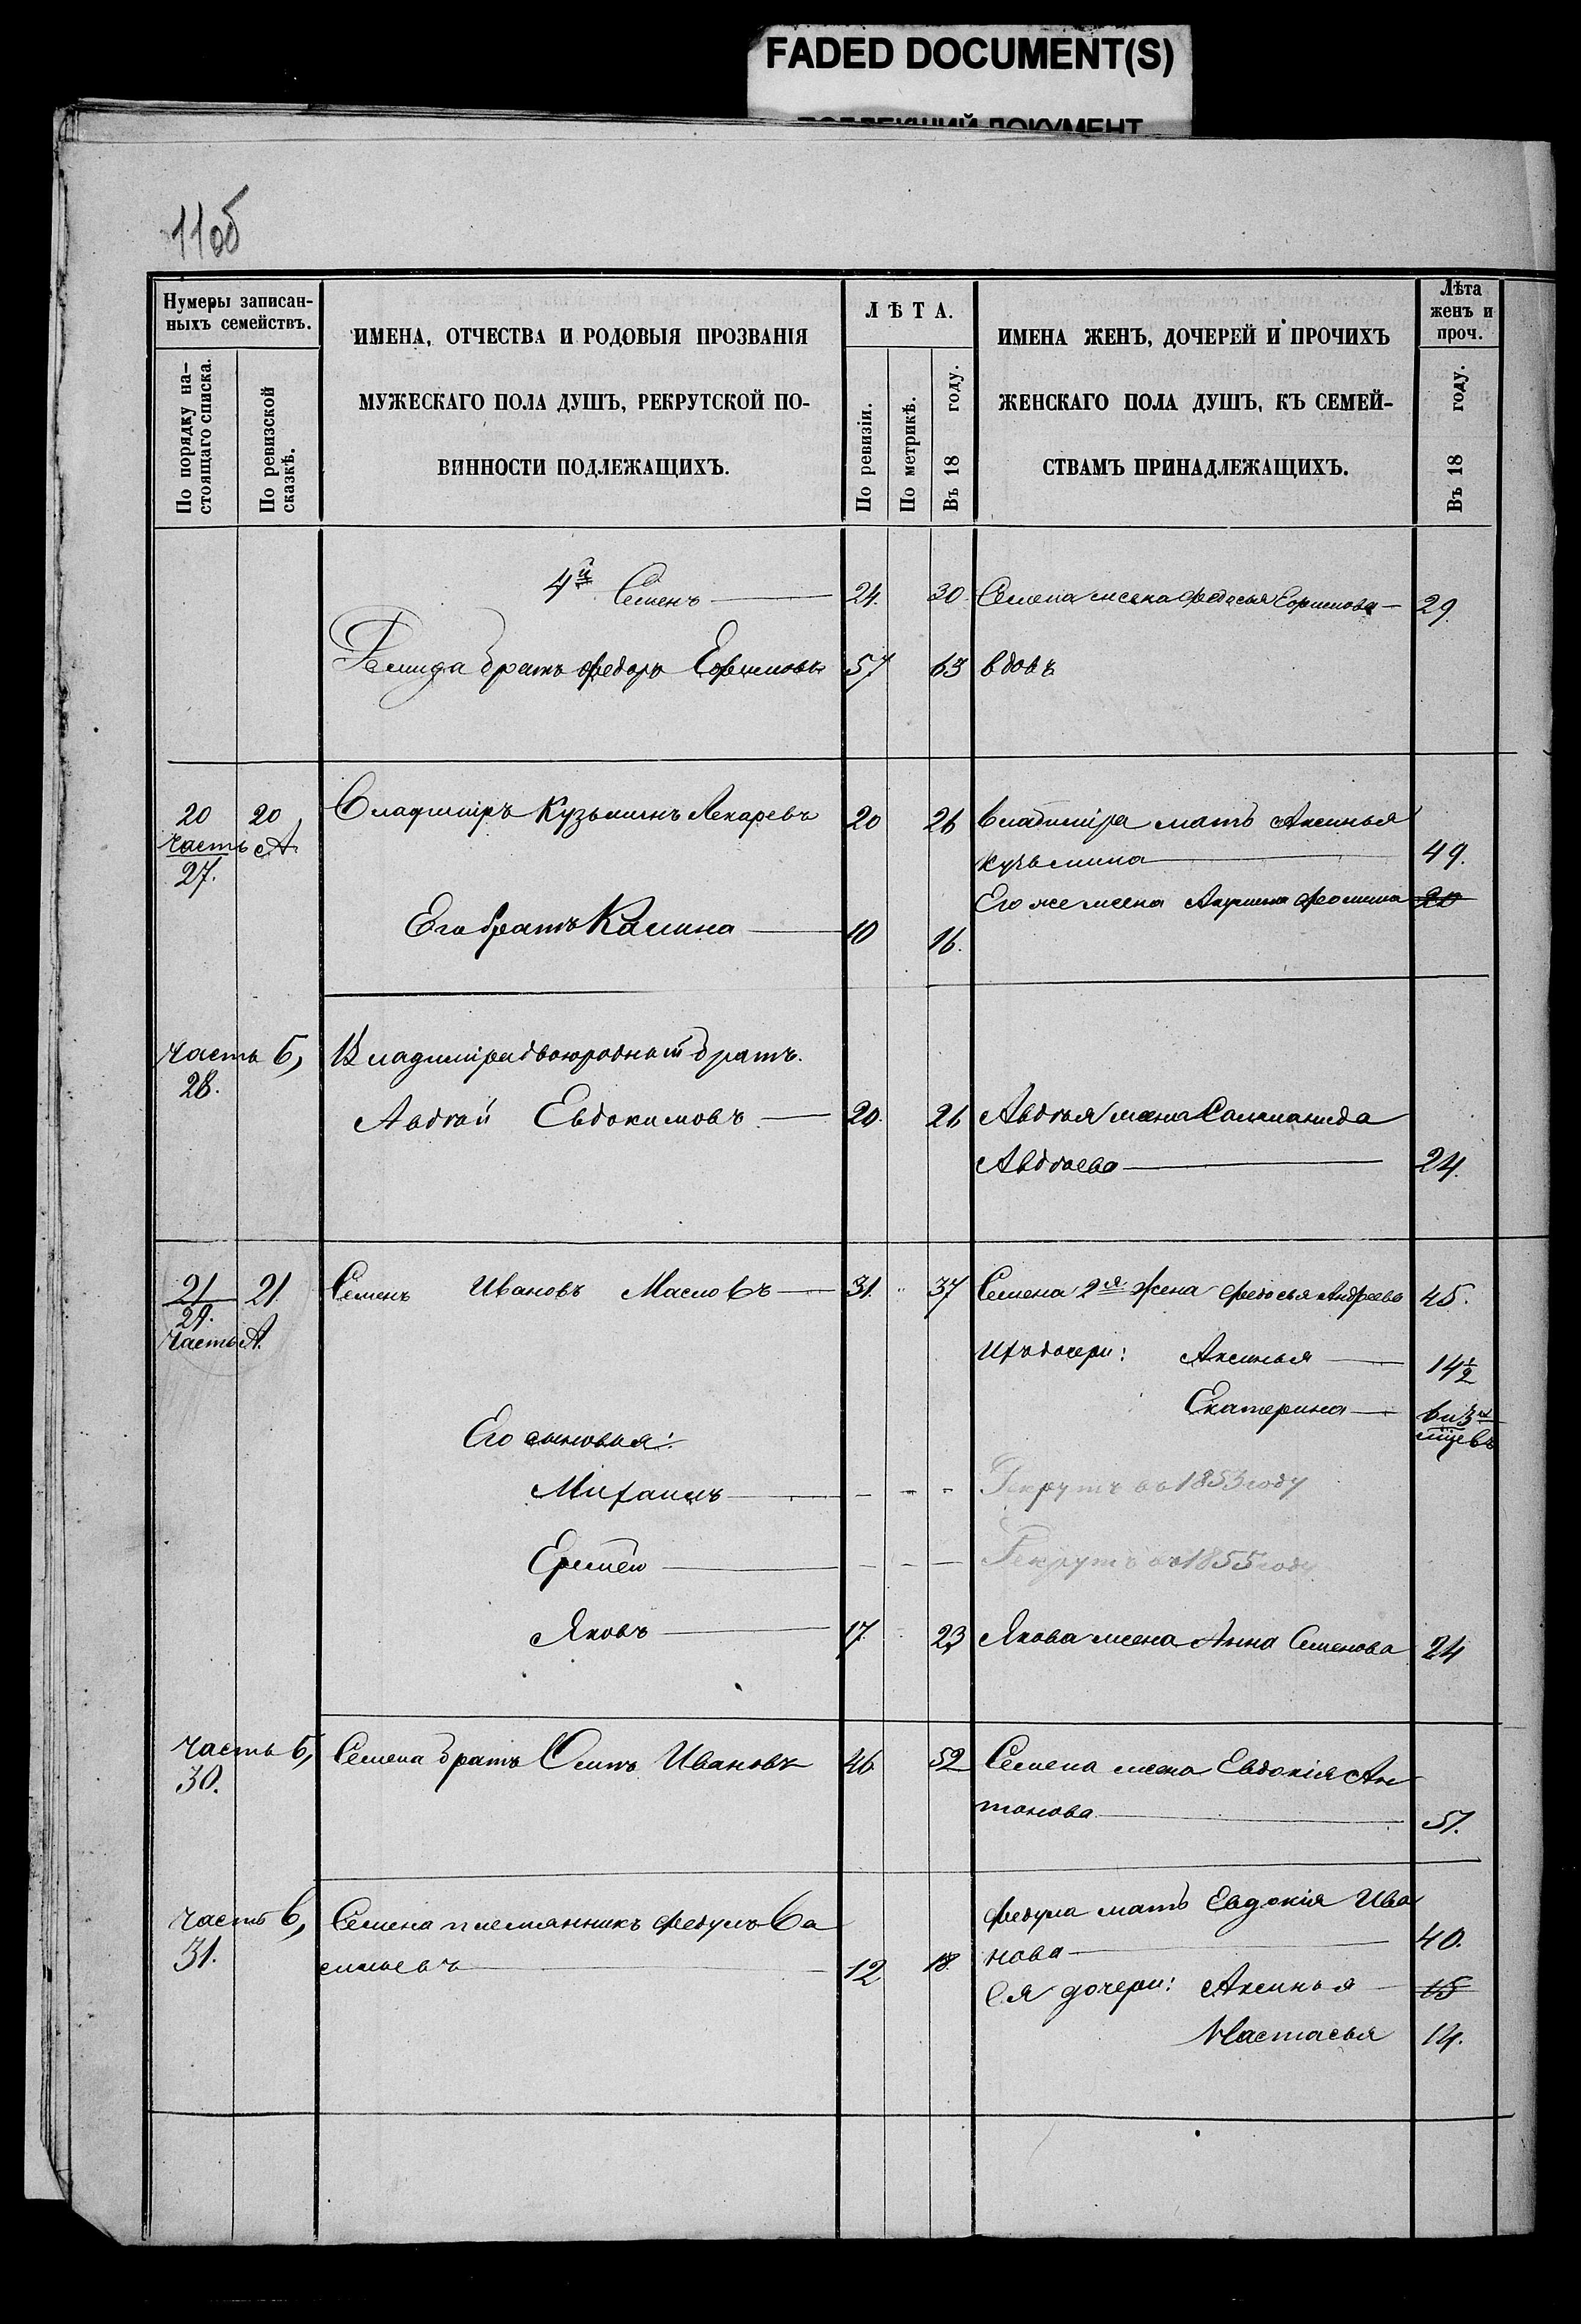 FADED DOCUMENT(S)
11об
Нумеры записан-
ныхъ семействъ.
По порядку на-
стоящаго списка.
По ревизской
сказкѣ.
ИМЕНА, ОТЧЕСТВА И РОДОВЫЯ ПРОЗВАНІЯ
МУЖЕСКАГО ПОЛА ДУШЪ, РЕКРУТСКОЙ ПО-
ВИННОСТИ ПОДЛЕЖАЩИХЪ.
ЛѢТА.
По ревизіи.
По метрикѣ.
Въ 18 году.
ИМЕНА ЖЕНЪ, ДОЧЕРЕЙ И ПРОЧИХЪ
ЖЕНСКАГО ПОЛА ДУШЪ, КЪ СЕМЕЙ-
СТВАМЪ ПРИНАДЛЕЖАЩИХЪ.
Лѣта
женъ и
проч.
Въ 18 году.
4й Семенъ 24. 30. Семена жена Федосья Ефимова 29
братъ Федоръ Ефимовъ 57 63 вдовъ
20 20 Владимiръ Кузьминъ Лекаревъ 20 26 Владимiра мать Аксинья
часть А.
27. Кузьмина 49.
Его же жена Фомина 20
Его братъ Калина 10 16.
часть Б, Владимiра двоюродный братъ.
28.
Авдѣй Евдокимовъ 20. 26 Авдѣя жена Саломанида
Авдѣева 24.
21 21 Семенъ Ивановъ Масловъ 31. 37 Семена 2я жена Федосья Андреева 45.
29.
часть А. Ихъ дочери: Аксинья 14½
Екатерина
Его сыновья:
Михаилъ Рекрутъ въ 1853 году
Еремей Рекрутъ въ 1855 году
Яковъ 17. 23 Якова жена Анна Семенова 24
часть Б, Семена братъ Осипъ Ивановъ 46 52 Семена жена Евдокiя Ан
30.
тонова 51.
часть В, Семена племянникъ Федулъ Ва Федула мать Евдокiя Ива
31. сильевъ 12 18. нова 40.
Ея дочери: Аксинья 15
Настасья 14.